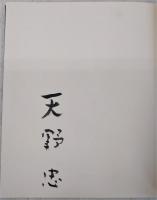 天野忠